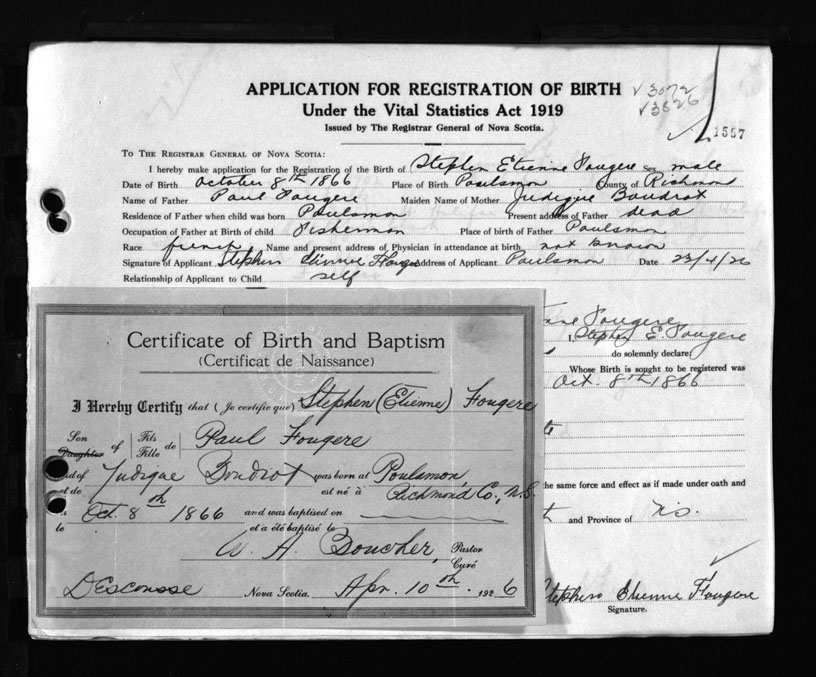 APPLICATION FOR REGISTRATION OF BIRTH
Under the Vital Statistics Act 1919
Issued by The Registrar General of Nova Scotia.
√ 3072
√ 3826
1557
TO THE REGISTRAR GENERAL OF NOVA SCOTIA:
I hereby make application for the Registration of the Birth of Stephen Etienne Fougere Sex male
Date of Birth October 8th 1866 Place of Birth Poulamon County of Richmond
Name of Father Paul Fougere Maiden Name of Mother Judique Boudrot
Residence of Father when child was born Poulamon Present address of Father dead
Occupation of Father at Birth of child Fisherman Place of birth of Father Poulamon
Race french Name and present address of Physician in attendance at birth not known
Signature of Applicant Stephen Etienne Fougere Address of Applicant Poulamon Date 23/4/26
Relationship of Applicant to Child self
Fougere
I, Stephen E. Fougere
do solemnly declare:
Whose Birth is sought to be registered was
Oct. 8th 1866
the same force and effect as if made under oath and
and Province of N.S.
Stephen Etienne Fougere
Signature.
Certificate of Birth and Baptism
(Certificat de Naissance)
I Hereby Certify that (Je certifie que) Stephen (Etienne) Fougere
Son Daughter of Fils Fille de Paul Fougere
and of et de Judique Boudrot was born at est né à Poulamon, Richmond Co., N.S.
le Oct. 8th 1866 and was baptised on et a été baptisé le
W. A. Boucher, Pastor Curé
D'Escousse Nova Scotia, Apr. 10th. 1926